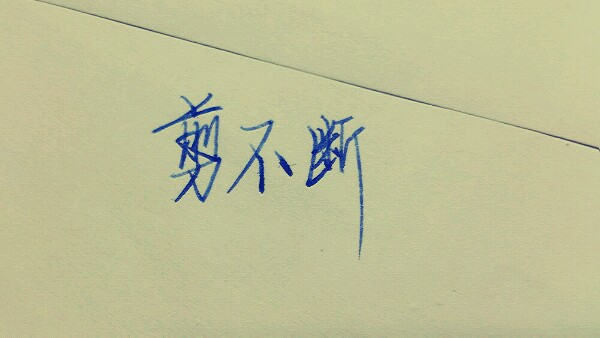 剪不断